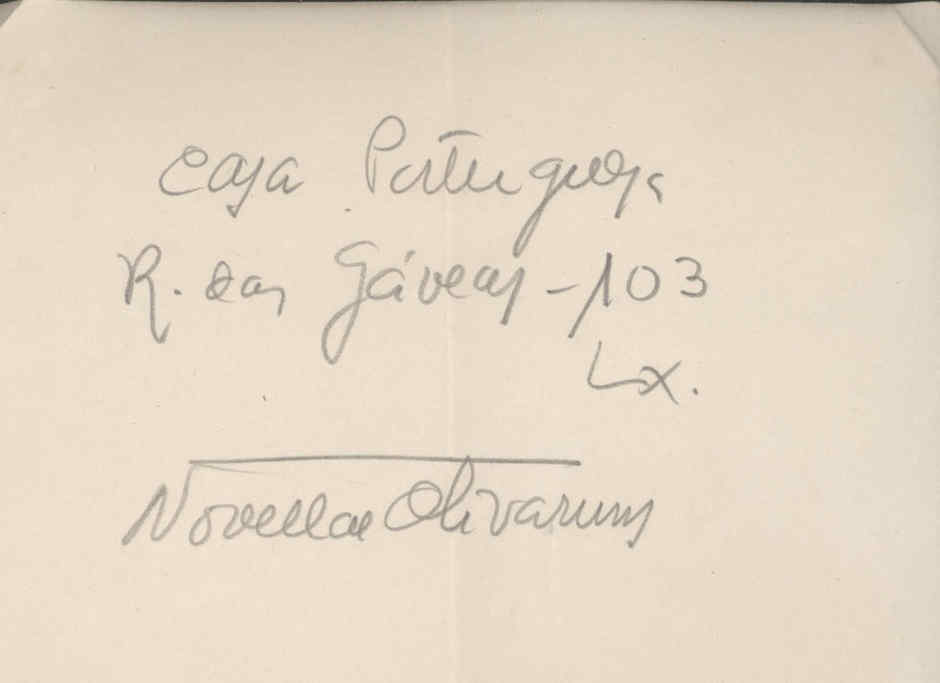 Casa Portuguesa
R. das Gáveas - 103
Lx.
Novellae Olivarum